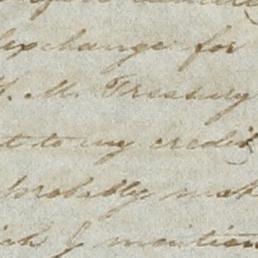 exchange for
Treasury
to my credit
probably mak
I mention